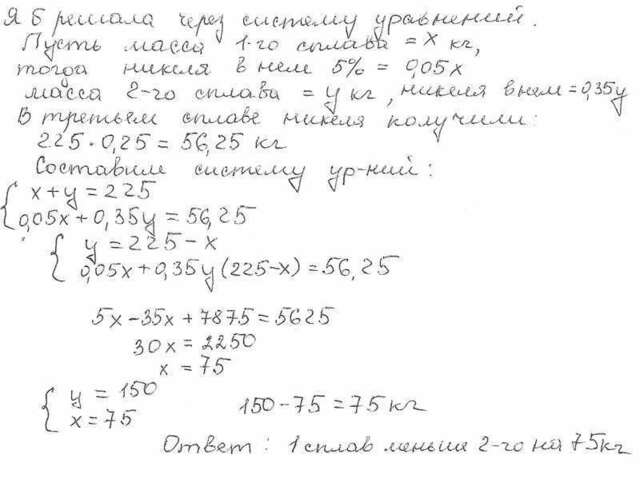 Я б решала через систему уравнений.
Пусть масса 1-го сплава = x кг,
тогда никеля в нем 5% = 0,05x
масса 2-го сплава = y кг, никеля в нем = 0,35y
В третьем сплаве никеля получили:
225 · 0,25 = 56,25 кг
Составим систему ур-ний:
x + y = 225
0,05x + 0,35y = 56,25
y = 225 - x
0,05x + 0,35y (225-x) = 56,25
5x - 35x + 7875 = 5625
30x = 2250
x = 75
y = 150
x = 75
150 - 75 = 75 кг
Ответ: 1 сплав меньше 2-го на 75 кг